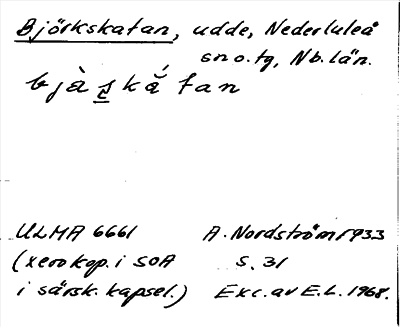 Björkskatan, udde, Nederluleå
sn o. tg, Nb. län.
bjàṣkǎ́tan
ULMA 6661 A. Nordström 1933
(xerokop. i SOA S. 31
i särsk. kapsel.) Exc. av E.L. 1968.